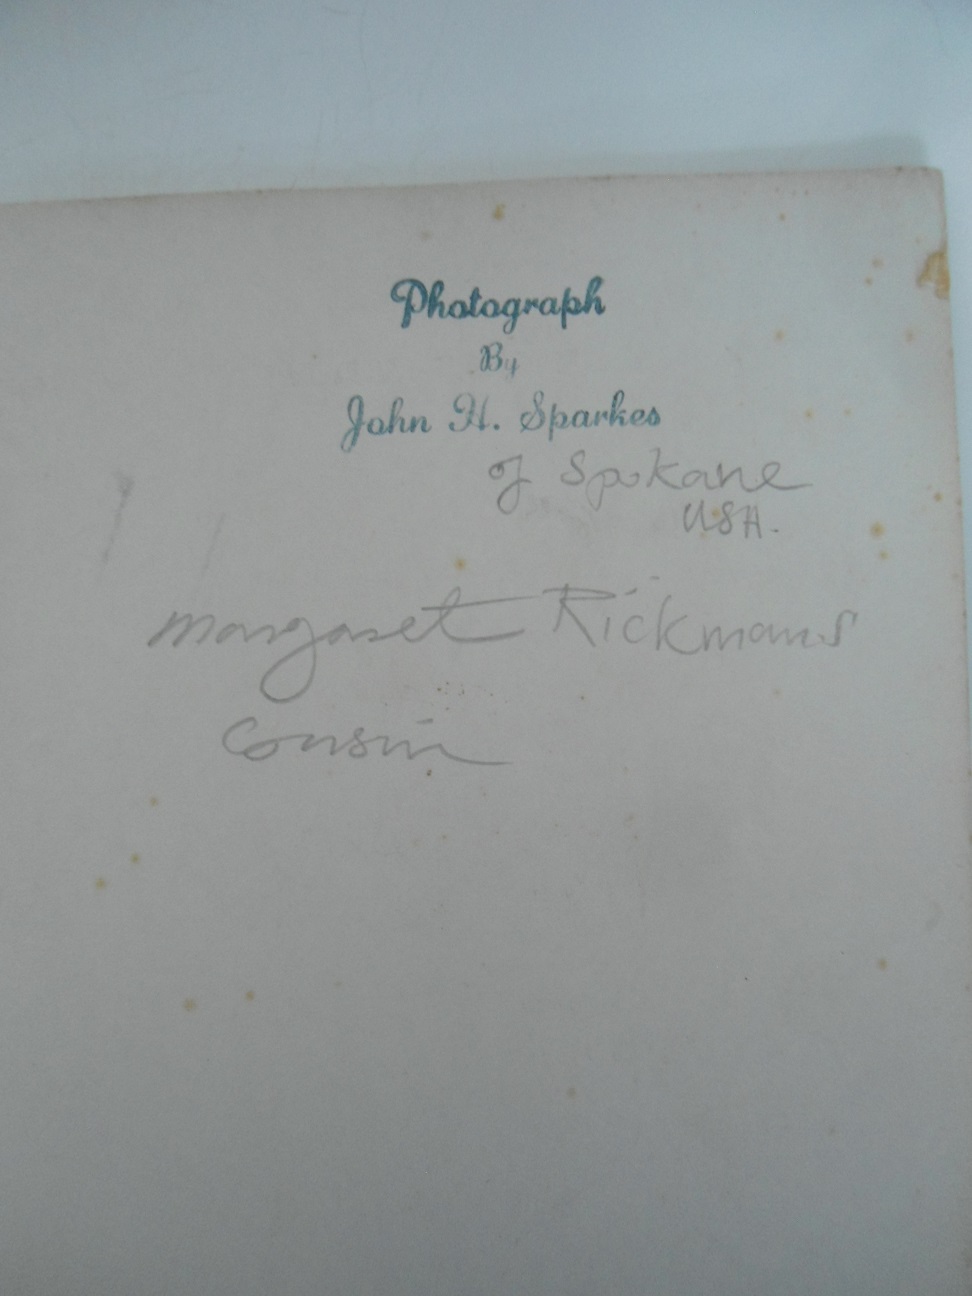 Photograph
By
John H. Sparkes
of Spokane
USA.
Margaret Rickmans
Cousin